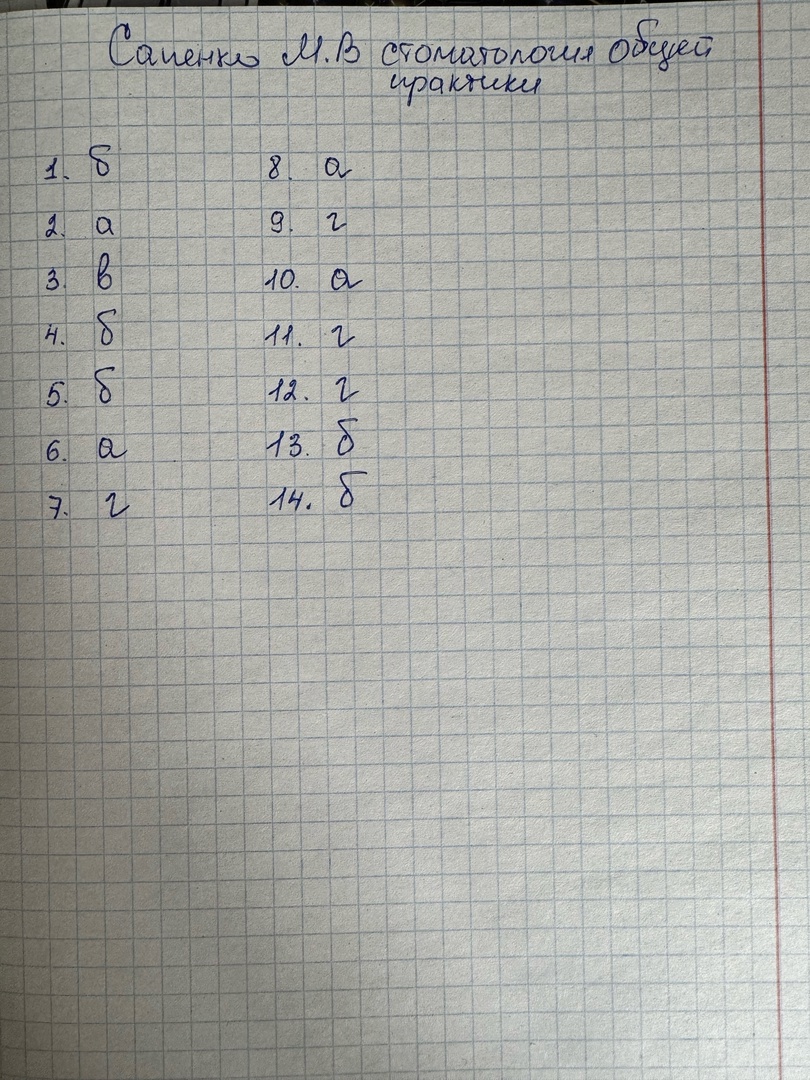 Сапенко М.В стоматология общей
практики
1. б
2. а
3. в
4. б
5. б
6. а
7. г
8. а
9. г
10. а
11. г
12. г
13. б
14. б